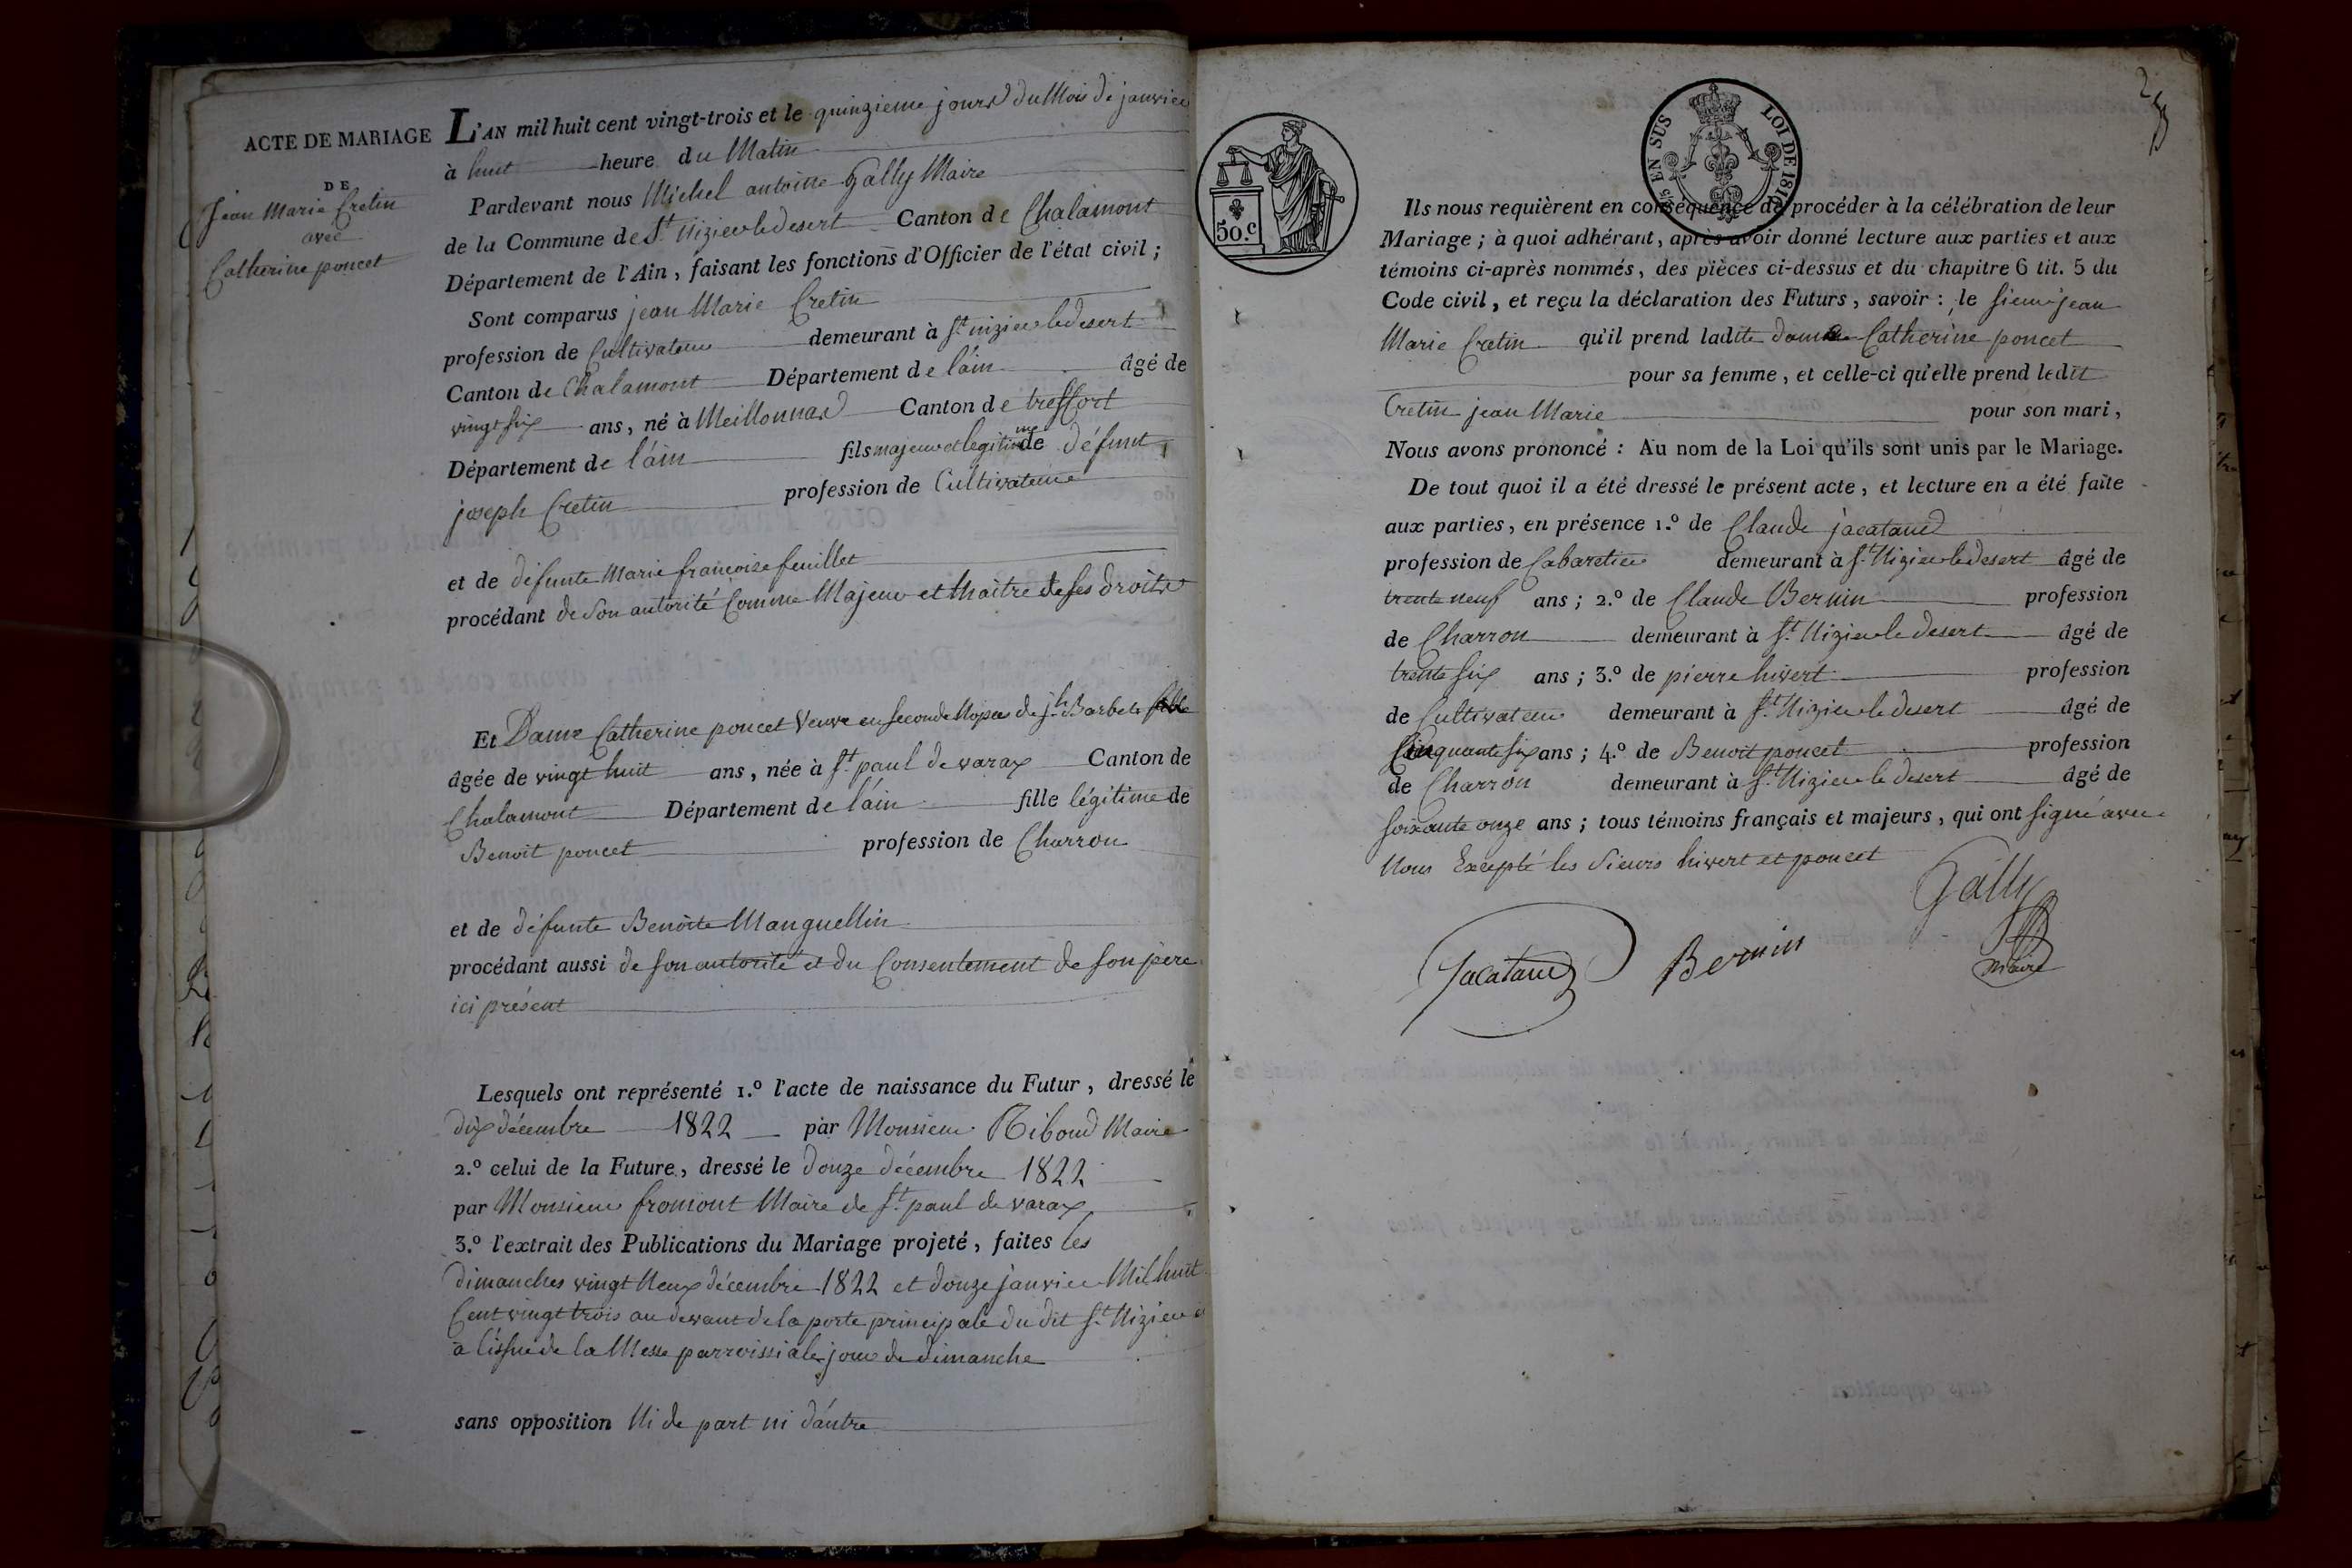 ACTE DE MARIAGE
DE
Jean Marie Cretin
avec
Catherine poncet
L'AN mil huit cent vingt-trois et le quinzieme jours du Mois de janvier
à huit heure du Matin
Pardevant nous Michel antoine Gally Maire
de la Commune de St. Nizier le desert Canton de Chalamont
Département de l'Ain, faisant les fonctions d'Officier de l'état civil ;
Sont comparus jean Marie Cretin
profession de Cultivateur demeurant à St nizier le desert
Canton de Chalamont Département de l'ain âgé de
vingt six ans, né à Meillonnas Canton de treffort
Département de l'ain fils majeur et legitime de défunt
joseph Cretin profession de Cultivateur
et de défunte Marie francoise feuillet
procédant de Son autorité Comme Majeur et Maitre de ses droits
Et Dame Catherine poncet Veuve en seconde Nopces de jh. Barbet fille
âgée de vingt huit ans, née à St. paul de varax Canton de
Chalamont Département de l'ain fille légitime de
Benoit poncet profession de Charron
et de défunte Benoîte Manguellin
procédant aussi de son autorité et du Consentement de son père
ici présent
Lesquels ont représenté 1.º l'acte de naissance du Futur, dressé le
dix décembre 1822 par Monsieur Riboud Maire
2.º celui de la Future, dressé le douze décembre 1822
par Monsieur fromont Maire de St. paul de varax
3.º l'extrait des Publications du Mariage projeté, faites les
dimanches vingt Neux décembre 1822 et douze janvier Mil huit
Cent vingt trois au devant de la porte principale du dit St. Nizier
à l'issue de la Messe parroissiale jour de dimanche
sans opposition Ni de part ni d'autre
50.c
EN SUS
LOI DE 1816
Ils nous requièrent en conséquence de procéder à la célébration de leur
Mariage ; à quoi adhérant, après avoir donné lecture aux parties et aux
témoins ci-après nommés, des pièces ci-dessus et du chapitre 6 tit. 5 du
Code civil, et reçu la déclaration des Futurs, savoir : le sieur jean
Marie Cretin qu'il prend ladite dame Catherine poncet
pour sa femme, et celle-ci qu'elle prend ledit
Cretin jean Marie pour son mari,
Nous avons prononcé : Au nom de la Loi qu'ils sont unis par le Mariage.
De tout quoi il a été dressé le présent acte, et lecture en a été faite
aux parties, en présence 1.º de Claude jacataud
profession de Cabaretier demeurant à St. Nizier le desert âgé de
trente neuf ans ; 2.º de Claude Bernin profession
de Charron demeurant à St. Nizier le desert âgé de
trente six ans ; 3.º de pierre hivert profession
de Cultivateur demeurant à St. Nizier le desert âgé de
Cinquante six ans ; 4.º de Benoit poncet profession
de Charron demeurant à St. Nizier le desert âgé de
soixante onze ans ; tous témoins français et majeurs, qui ont signé avec
Nous Excepté les Sieurs hivert et poncet
Gally
Jacataud Bernin
maire